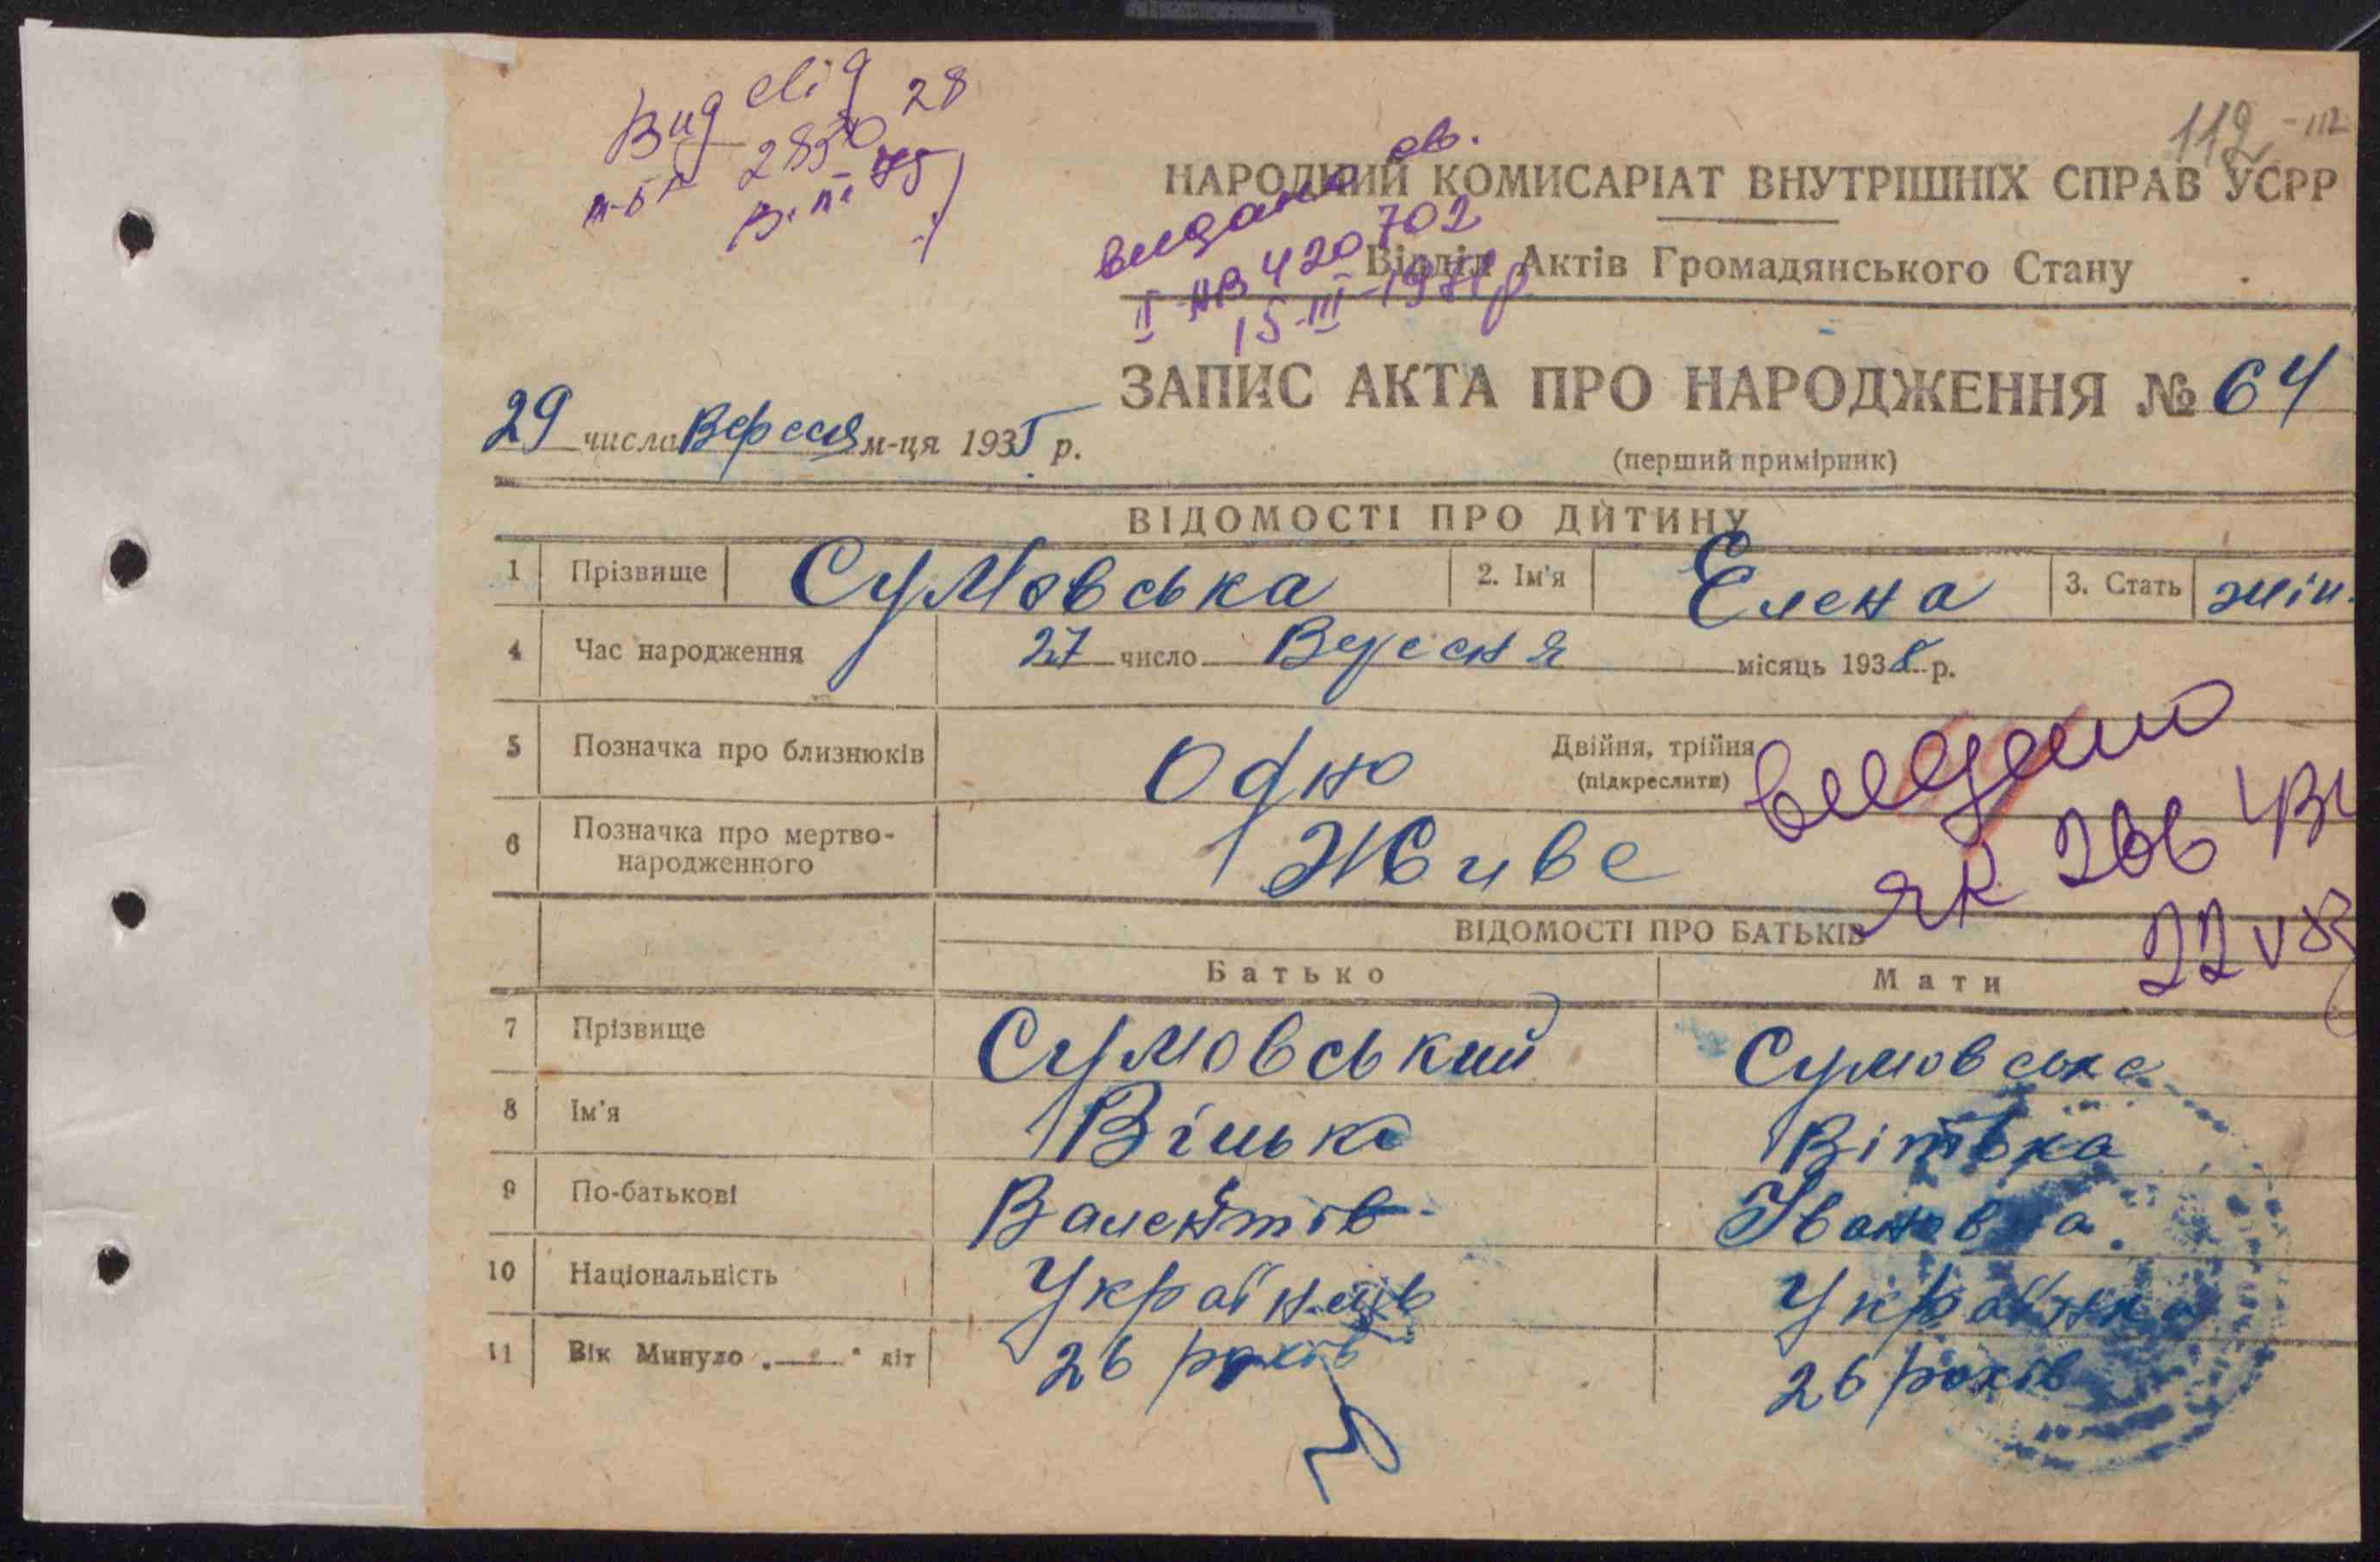 112 - 112
Вид
28
НАРОДНИЙ КОМИСАРІАТ ВНУТРІШНІХ СПРАВ УСРР
видано св.
Відділ Актів Громадянського Стану
II НВ 420702
15-III-
ЗАПИС АКТА ПРО НАРОДЖЕННЯ № 64
29 числа Вересня м-ця 1935 р.
(перший примірник)
ВІДОМОСТІ ПРО ДИТИНУ
1 Прізвище Сумовська 2. Ім'я Елена 3. Стать жін.
4 Час народження 27 число Вересня місяць 193 р.
5 Позначка про близнюків Одно Двійня, трійня
(підкреслити)
видано
6 Позначка про мертво-
народженного Живе
ВІДОМОСТІ ПРО БАТЬКІВ
22 V
Батько Мати
7 Прізвище Сумовський Сумовська
8 Ім'я
9 По-батькові Івановна
10 Національність Українка
11 Вік Минуло „ “ літ 26 років 26 років